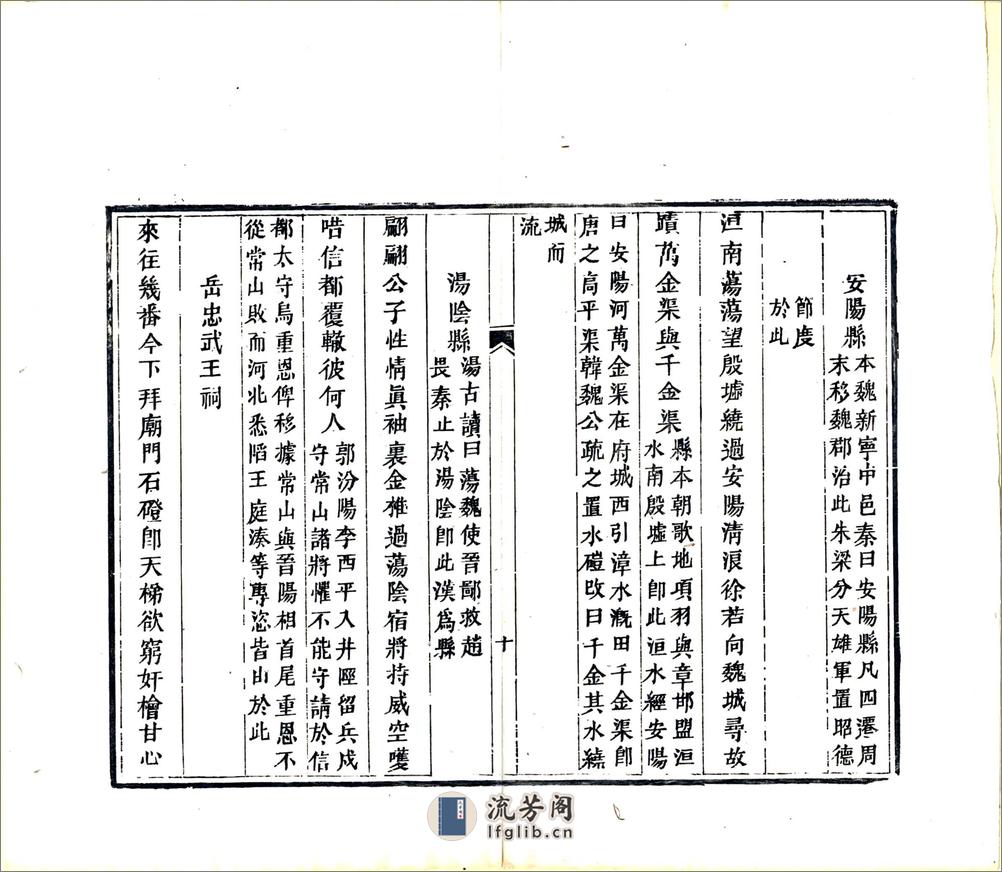 安陽縣
本魏新寧中邑秦曰安陽縣凡四遷周
末移魏郡治此朱梁分天雄軍置昭德
節度
於此
洹南蕩蕩望殷墟繞過安陽清浪徐若向魏城尋故
蹟萬金渠與千金渠
縣本朝歌地項羽與章邯盟洹
水南殷墟上卽此洹水經安陽
曰安陽河萬金渠在府城西引漳水漑田千金渠卽
唐之高平渠韓魏公疏之置水磑改曰千金其水繞
城而
流
十
湯陰縣
湯古讀曰蕩魏使晉鄙救趙
畏秦止於湯陰卽此漢爲縣
翩翩公子性情眞袖裏金椎過蕩陰宿將持威空嚄
唶信都覆轍彼何人
郭汾陽李西平入井陘留兵戍
守常山諸將懼不能守請於信
都太守烏重恩俾移據常山與晉陽相首尾重恩不
從常山敗而河北悉陷王庭湊等專恣皆由於此
岳忠武王祠
來往幾番今下拜廟門石磴卽天梯欲窮奸檜甘心
流芳阁
lfglib.cn